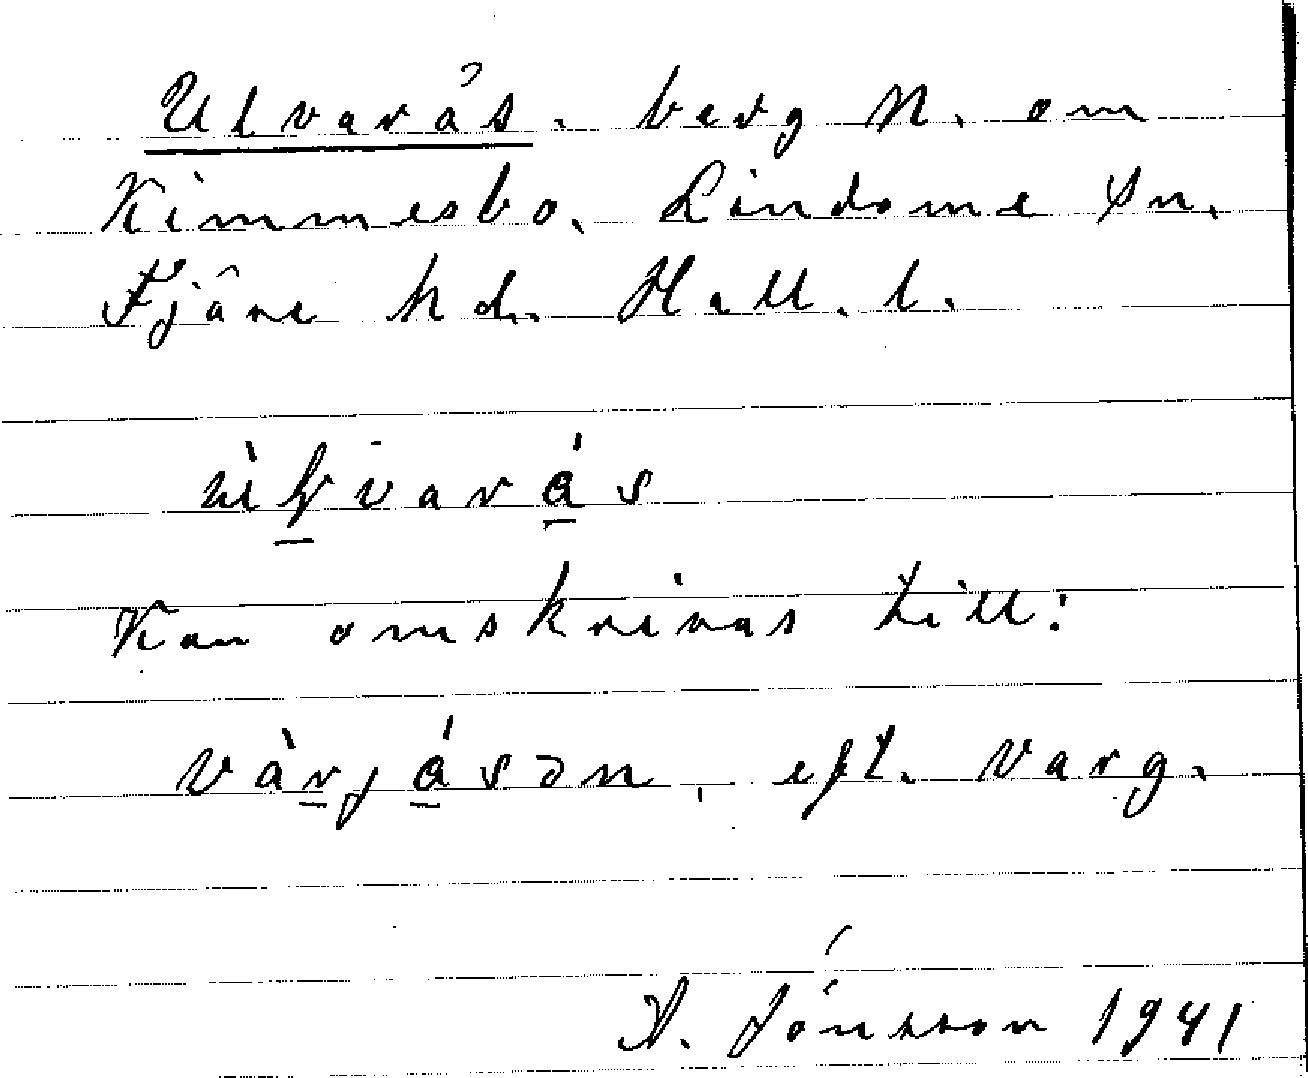 Ulvarås. berg N. om
Kimmesbo. Lindome sn.
Fjäre hd. Hall. l.
Kan omskrivas till:
vàrjásən, eft. varg.
A. Jónsson 1941